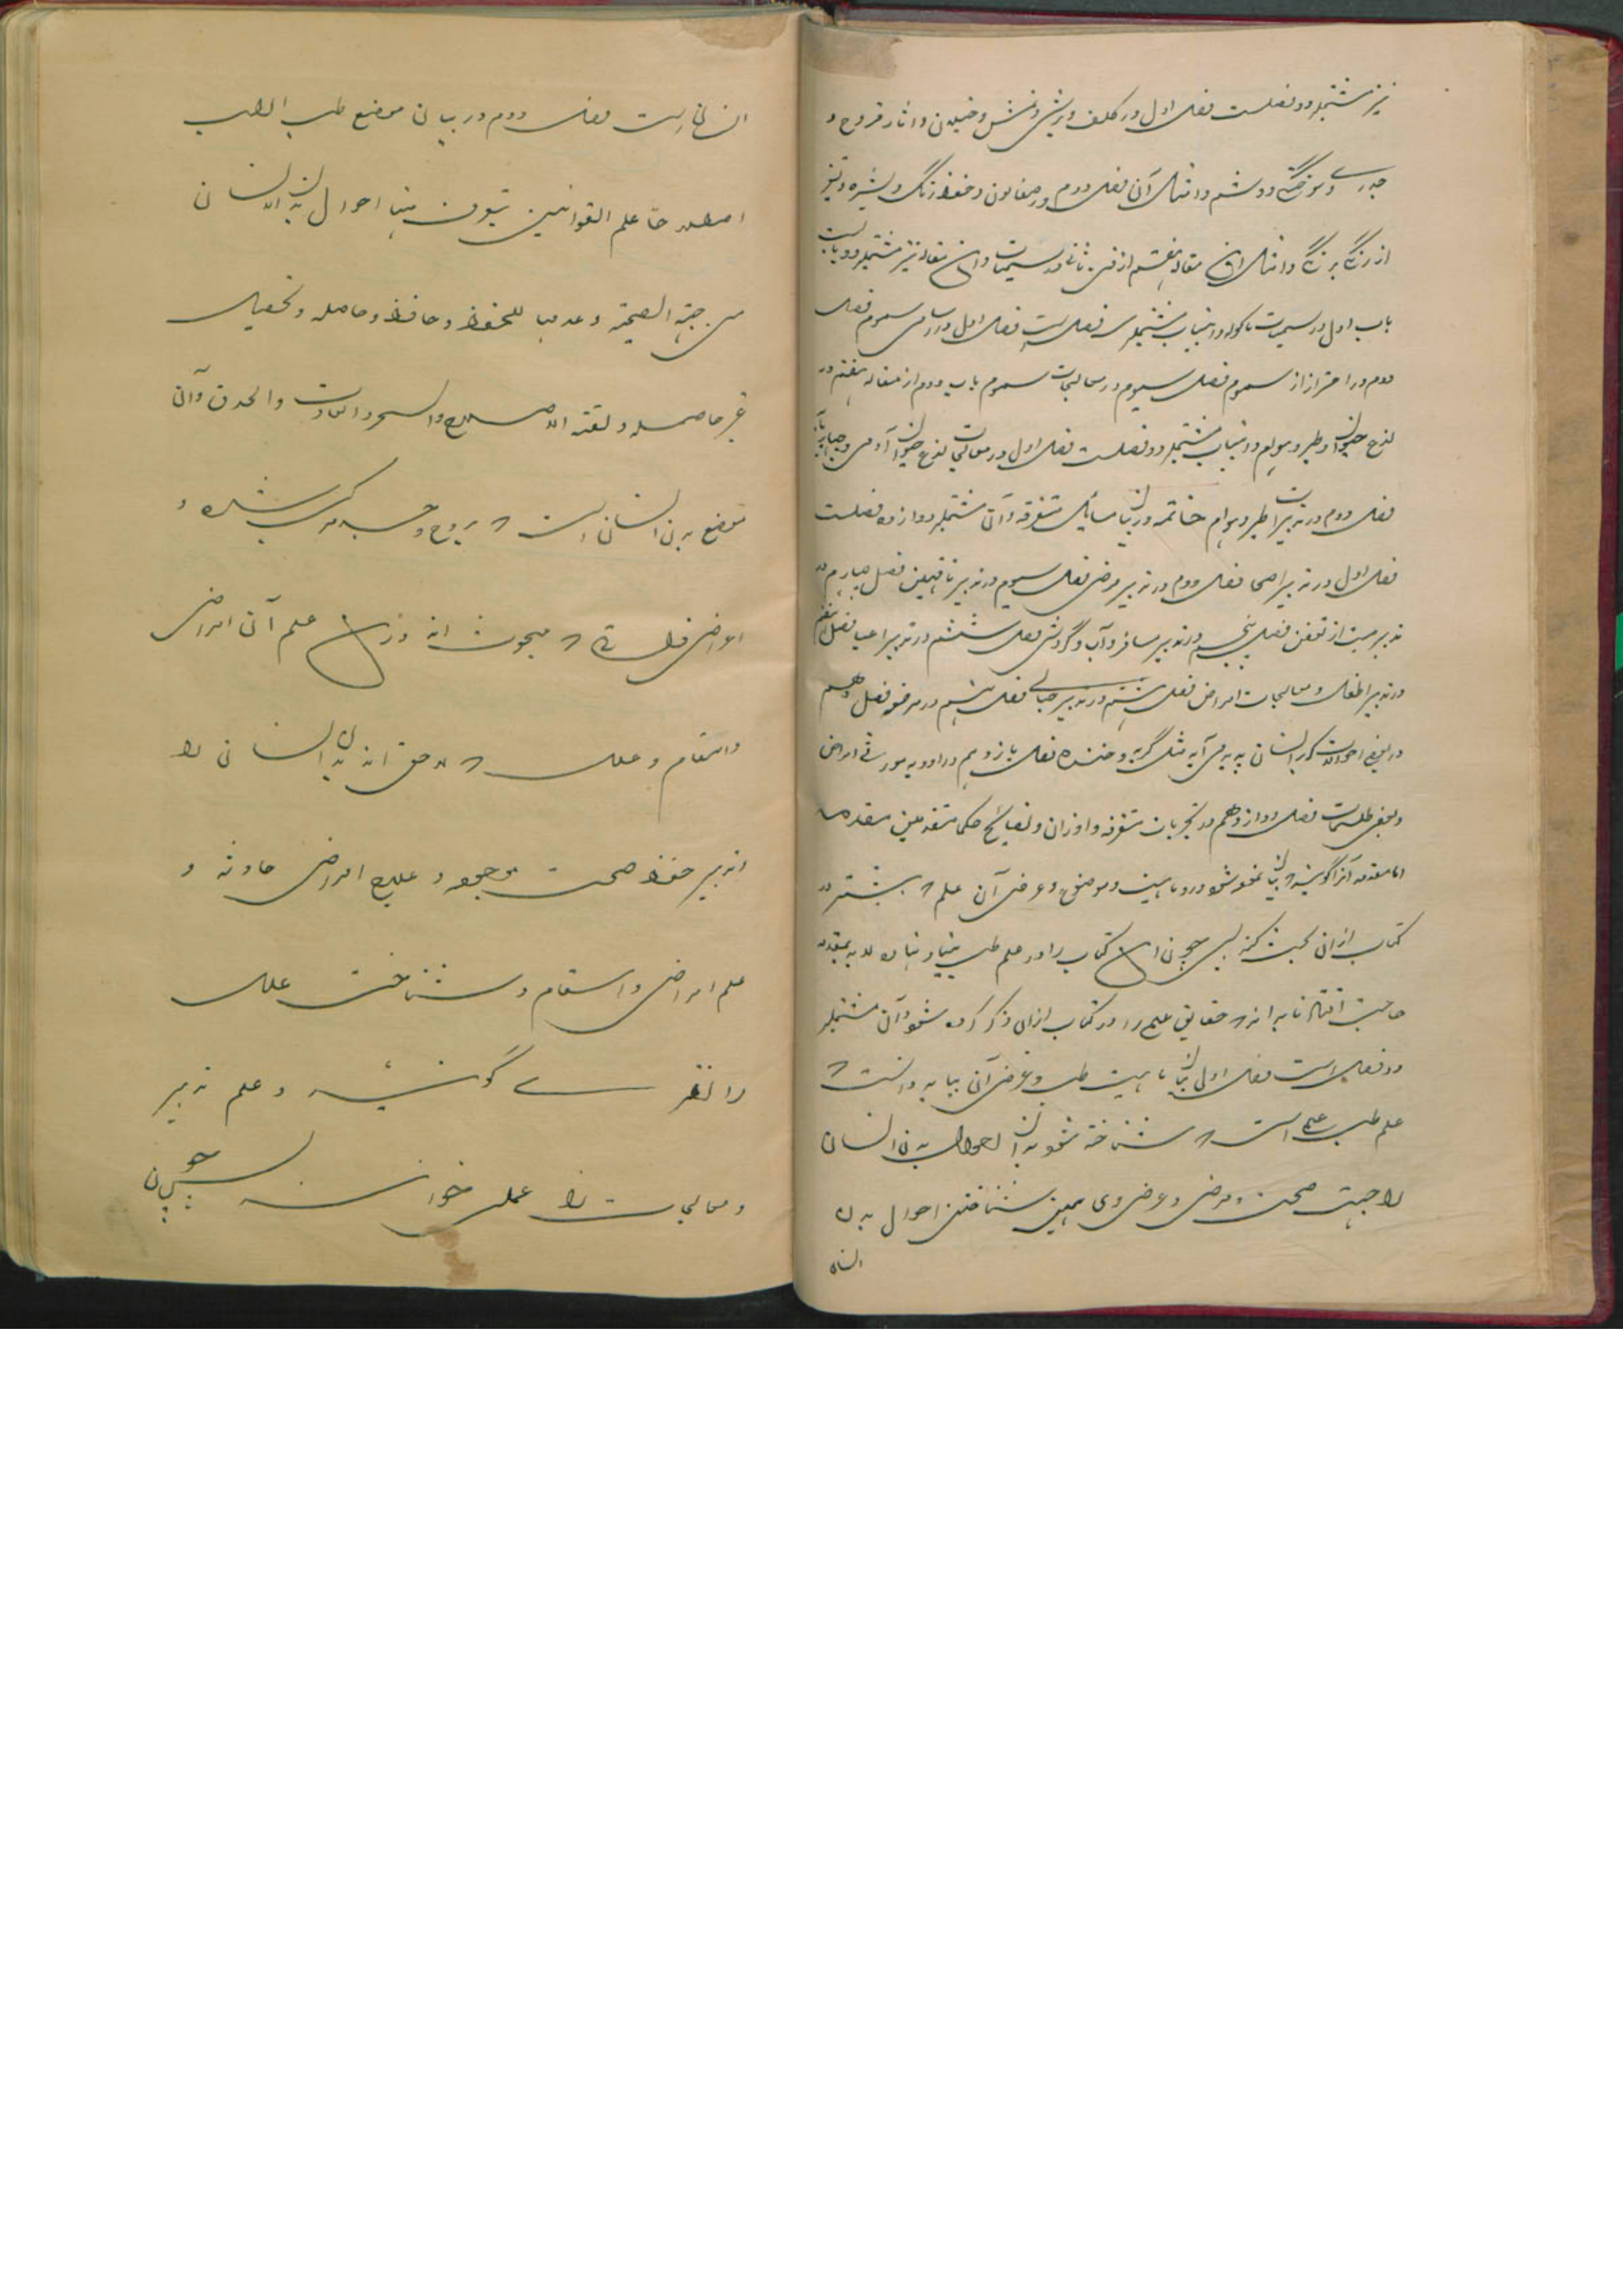 نیز مشتمل دو فصلست فصل اول در کلف و برش و نمش و خیلان و اثار قروح و
جدری و سوختگی و وشم و امثال آن فصل دوم در صفا لون و حفظ رنگ و بشره و تغیر
از رنگ برنگ و امثال این مقاله هفتم از فن ثانی در سمیات و این مقاله نیز مشتمل دو باب است
باب اول در سمیات ماکوله و اینباب مشتمل سه فصل است فصل اول در اسامی سموم فصل
دوم در احتراز از سموم فصل سیوم در معالجات سموم باب دوم از مقاله هفتم در
لذع حیوان و طیر و هوام و اینباب مشتمل دو فصلست فصل اول در معالجات لذع حیوان آدمی و
فصل دوم در تدبیر طیر و هوام خاتمه در بیان مسایل متفرقه و آن مشتمل دوازده فصلست
فصل اول در تدبیر اصحا فصل دوم در تدبیر مرضی فصل سیوم در تدبیر ناقهین فصل چهارم در
تدبیر میت از تعفن فصل پنجم در تدبیر مسافر و آب و گردش فصل ششم در تدبیر اعیا فصل هفتم
در تدبیر اطفال و معالجات امراض فصل هشتم در تدبیر حبالی فصل نهم در مرضعه فصل دهم
در بعض احوالات که بر انسان پدید می آید مثل گریه و خنده فصل یازدهم در ادویه موروثی امراض
و بعض طلسمات فصل دوازدهم در تجربات متفرقه و اوزان و نصایح حکما متقدمین مقدمه
اما مقدمه آنرا گویند که بیان نموده شود در و ماهیت و موضع و عرض آن علم که بیشتر در
کتاب ازان بحث کند پس چون این کتاب را در علم طب بنیاد نهاده لا بد بمقدمه
حاجت افتاد تا بداند که حقایق علم را در کتاب ازان ذکر کرده شود و آن مشتمل
دو فصل است فصل اول در بیان ماهیت طب و غرض آن بباید دانست که
علم طب علمی است که شناخته شود بدان احوال بدن انسان
را جهت صحت و مرض و غرض وی همین شناختن احوال بدن
انسان
انسانی است فصل دوم در بیان موضع طب الطب
علم القوانین یتعرف منها احوال بدن الانسان
من جهة الصحة و عدمها للحفظ و حافظ و حاصله و تحصیل
غیر حاصله و لغته الاصلاح و السحر و العادت و الحذق و آن
موضع بدن انسان است که بروح و جسد مرکب شده و
اعراض که مبحوث اند ازین علم آن امراض
و اسقام و علل که لاحق اند بدن انسانی را
تدبیر حفظ صحت موجود و علاج امراض حادثه و
علم امراض و اسقام و شناخت علل
را نظری گویند و علم تدبیر
و معالجات را عملی خوانند پس چون